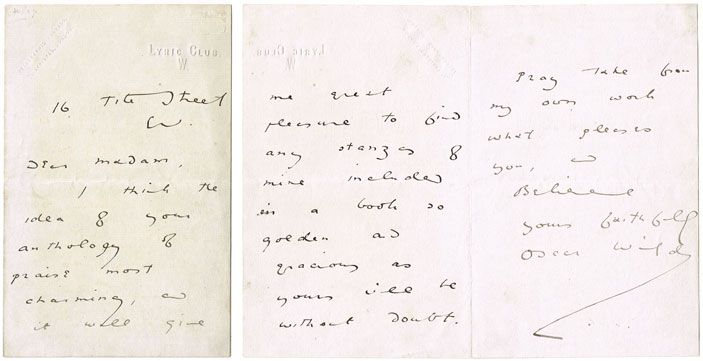 LYRIC CLUB.
W
16 Tite Street
SW.
Dear Madam,
I think the
idea of your
anthology of
praise most
charming, and
it will give
LYRIC CLUB.
W
me great
pleasure to find
any stanzas of
mine included
in a book so
golden and
gracious as
yours ill be
without doubt.
Pray take from
my own work
what pleases
you, and
Believe
yours faithfully
Oscar Wilde